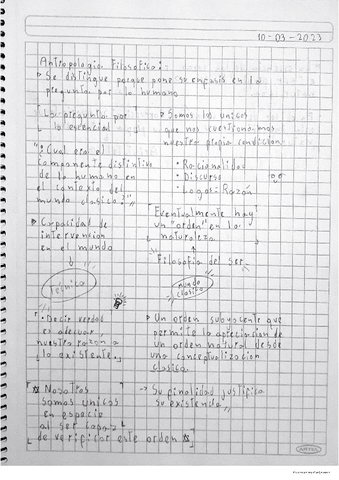 10 - 03 - 2023
Antropología Filosófica:
Se distingue porque pone su enfasis en la
pregunta por lo humano
La pregunta por
lo esencial
Somos los unicos
que nos cuestionamos
nuestra propia condicion
"¿Cual era el
componente distintivo
de lo humano en
el contexto del
mundo clasico?"
• Racionalidad
• Discurso
• Logos: Razón
Capacidad de
intervencion
en el mundo
Eventualmente hay
un "orden" en la
naturaleza
Filosofia del ser
Tecnica
mundo
clasico
• Decir verdad
es adecuar
nuestra razon a
lo existente.
Un orden subyacente que
permite la apreciacion de
un orden natural desde
una conceptualizacion
clasica
Nosotros
somos unicos
en especie
al ser capaz
de verificar este orden
→ Su finalidad justifica
su existencia